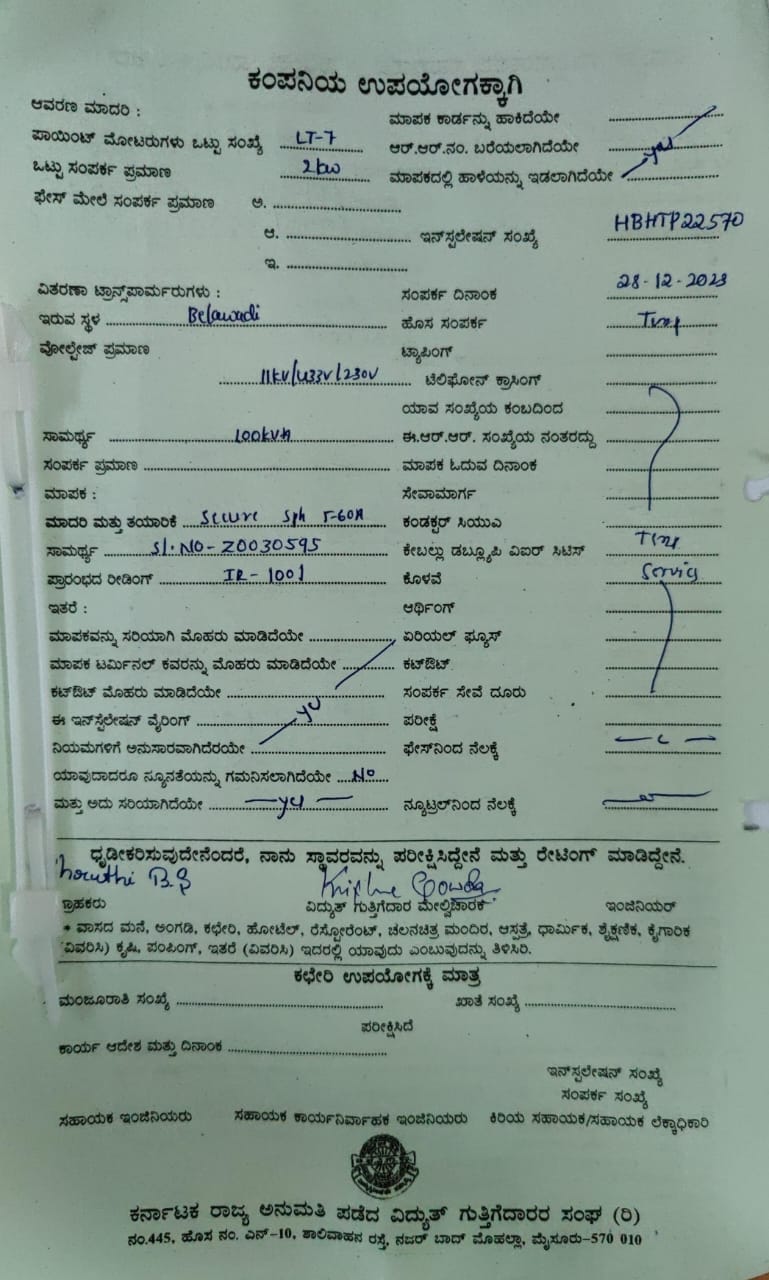 ಕಂಪನಿಯ ಉಪಯೋಗಕ್ಕಾಗಿ
ಆವರಣ ಮಾದರಿ :
ಮಾಪಕ ಕಾರ್ಡನ್ನು ಹಾಕಿದೆಯೇ
ಪಾಯಿಂಟ್ ಮೋಟರುಗಳು ಒಟ್ಟು ಸಂಖ್ಯೆ LT-7
ಆರ್.ಆರ್.ನಂ. ಬರೆಯಲಾಗಿದೆಯೇ
ಒಟ್ಟು ಸಂಪರ್ಕ ಪ್ರಮಾಣ 2kw
ಮಾಪಕದಲ್ಲಿ ಹಾಳೆಯನ್ನು ಇಡಲಾಗಿದೆಯೇ yes
ಫೇಸ್ ಮೇಲೆ ಸಂಪರ್ಕ ಪ್ರಮಾಣ ಅ.
ಆ. ಇನ್‌ಸ್ಟಲೇಷನ್ ಸಂಖ್ಯೆ HBHTP22570
ಇ.
ವಿತರಣಾ ಟ್ರಾನ್ಸ್‌ಪಾರ್ಮರುಗಳು :
ಸಂಪರ್ಕ ದಿನಾಂಕ 28-12-2023
ಇರುವ ಸ್ಥಳ Belawadi
ಹೊಸ ಸಂಪರ್ಕ Temp
ವೋಲ್ಟೇಜ್ ಪ್ರಮಾಣ
ಟ್ಯಾಪಿಂಗ್
11kV/433V/230V
ಟೆಲಿಫೋನ್ ಕ್ರಾಸಿಂಗ್
ಯಾವ ಸಂಖ್ಯೆಯ ಕಂಬದಿಂದ
ಸಾಮರ್ಥ್ಯ 100kVA
ಈ.ಆರ್.ಆರ್. ಸಂಖ್ಯೆಯ ನಂತರದ್ದು
ಸಂಪರ್ಕ ಪ್ರಮಾಣ
ಮಾಪಕ ಓದುವ ದಿನಾಂಕ
ಮಾಪಕ :
ಸೇವಾಮಾರ್ಗ
ಮಾದರಿ ಮತ್ತು ತಯಾರಿಕೆ Secure Sph 5-60A
ಕಂಡಕ್ಟರ್ ಸಿಯುಎ
ಸಾಮರ್ಥ್ಯ Sl.NO-Z0030595
ಕೇಬಲ್ಲು ಡಬ್ಲ್ಯೂಪಿ ವಿಐರ್ ಸಿಟಿಸ್ Temp
ಪ್ರಾರಂಭದ ರೀಡಿಂಗ್ IR-1001
ಕೊಳವೆ Service
ಇತರೆ :
ಆರ್ಥಿಂಗ್
ಮಾಪಕವನ್ನು ಸರಿಯಾಗಿ ಮೊಹರು ಮಾಡಿದೆಯೇ
ಏರಿಯಲ್ ಫ್ಯೂಸ್
ಮಾಪಕ ಟರ್ಮಿನಲ್ ಕವರನ್ನು ಮೊಹರು ಮಾಡಿದೆಯೇ
ಕಟ್‌ಔಟ್
ಕಟ್‌ಔಟ್ ಮೊಹರು ಮಾಡಿದೆಯೇ
ಸಂಪರ್ಕ ಸೇವೆ ದೂರು
ಈ ಇನ್‌ಸ್ಟಲೇಷನ್ ವೈರಿಂಗ್ yes
ಪರೀಕ್ಷೆ
ನಿಯಮಗಳಿಗೆ ಅನುಸಾರವಾಗಿದೆರಯೇ
ಫೇಸ್‌ನಿಂದ ನೆಲಕ್ಕೆ
ಯಾವುದಾದರೂ ನ್ಯೂನತೆಯನ್ನು ಗಮನಿಸಲಾಗಿದೆಯೇ No
ಮತ್ತು ಅದು ಸರಿಯಾಗಿದೆಯೇ yes
ನ್ಯೂಟ್ರಲ್‌ನಿಂದ ನೆಲಕ್ಕೆ
ಧೃಡೀಕರಿಸುವುದೇನೆಂದರೆ, ನಾನು ಸ್ಥಾವರವನ್ನು ಪರೀಕ್ಷಿಸಿದ್ದೇನೆ ಮತ್ತು ರೇಟಿಂಗ್ ಮಾಡಿದ್ದೇನೆ.
B.S Krishne Gowda
ಗ್ರಾಹಕರು ವಿದ್ಯುತ್ ಗುತ್ತಿಗೆದಾರ ಮೇಲ್ವಿಚಾರಕ ಇಂಜಿನಿಯರ್
• ವಾಸದ ಮನೆ, ಅಂಗಡಿ, ಕಛೇರಿ, ಹೋಟೆಲ್, ರೆಸ್ಟೋರೆಂಟ್, ಚಲನಚಿತ್ರ ಮಂದಿರ, ಆಸ್ಪತ್ರೆ, ಧಾರ್ಮಿಕ, ಶೈಕ್ಷಣಿಕ, ಕೈಗಾರಿಕ
(ವಿವರಿಸಿ) ಕೃಷಿ, ಪಂಪಿಂಗ್, ಇತರೆ (ವಿವರಿಸಿ) ಇದರಲ್ಲಿ ಯಾವುದು ಎಂಬುವುದನ್ನು ತಿಳಿಸಿರಿ.
ಕಛೇರಿ ಉಪಯೋಗಕ್ಕೆ ಮಾತ್ರ
ಮಂಜೂರಾತಿ ಸಂಖ್ಯೆ ಖಾತೆ ಸಂಖ್ಯೆ
ಪರೀಕ್ಷಿಸಿದೆ
ಕಾರ್ಯ ಆದೇಶ ಮತ್ತು ದಿನಾಂಕ
ಇನ್‌ಸ್ಟಲೇಷನ್ ಸಂಖ್ಯೆ
ಸಂಪರ್ಕ ಸಂಖ್ಯೆ
ಸಹಾಯಕ ಇಂಜಿನಿಯರು ಸಹಾಯಕ ಕಾರ್ಯನಿರ್ವಾಹಕ ಇಂಜಿನಿಯರು ಕಿರಿಯ ಸಹಾಯಕ/ಸಹಾಯಕ ಲೆಕ್ಕಾಧಿಕಾರಿ
ಕರ್ನಾಟಕ ರಾಜ್ಯ ಅನುಮತಿ ಪಡೆದ ವಿದ್ಯುತ್ ಗುತ್ತಿಗೆದಾರರ ಸಂಘ (ರಿ)
ನಂ.445, ಹೊಸ ನಂ. ಎನ್-10, ಶಾಲಿವಾಹನ ರಸ್ತೆ, ನಜರ್ ಬಾದ್ ಮೊಹಲ್ಲಾ, ಮೈಸೂರು-570 010